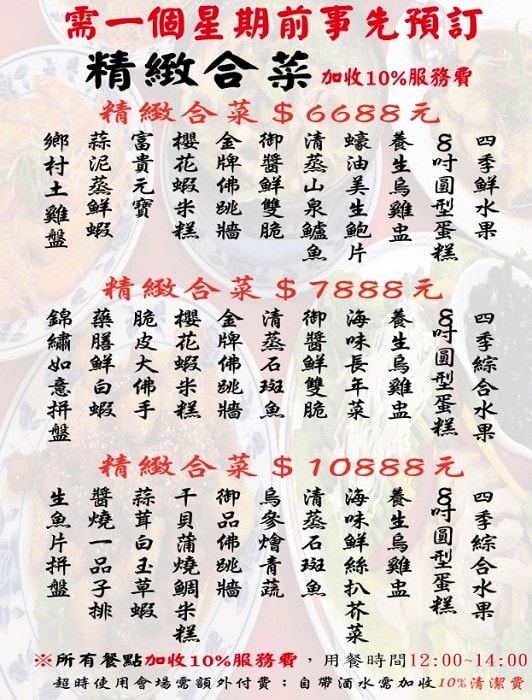 需一個星期前事先預訂
精緻合菜 加收10%服務費
精緻合菜＄6688元
鄉村土雞盤
蒜泥蒸鮮蝦
富貴元寶
櫻花蝦米糕
金牌佛跳牆
御醬鮮雙脆
清蒸山泉鱸魚
蠔油美生鮑片
養生烏雞盅
8吋圓型蛋糕
四季鮮水果
精緻合菜＄7888元
錦繡如意拼盤
藥膳鮮白蝦
脆皮大佛手
櫻花蝦米糕
金牌佛跳牆
清蒸石斑魚
御醬鮮雙脆
海味長年菜
養生烏雞盅
8吋圓型蛋糕
四季綜合水果
精緻合菜＄10888元
生魚片拼盤
醬燒一品子排
蒜茸白玉草蝦
干貝蒲燒鯛米糕
御品佛跳牆
烏參燴青蔬
清蒸石斑魚
海味鮮絲扒芥菜
養生烏雞盅
8吋圓型蛋糕
四季綜合水果
※所有餐點加收10%服務費，用餐時間12:00~14:00
超時使用會場需額外付費；自帶酒水需加收10%清潔費